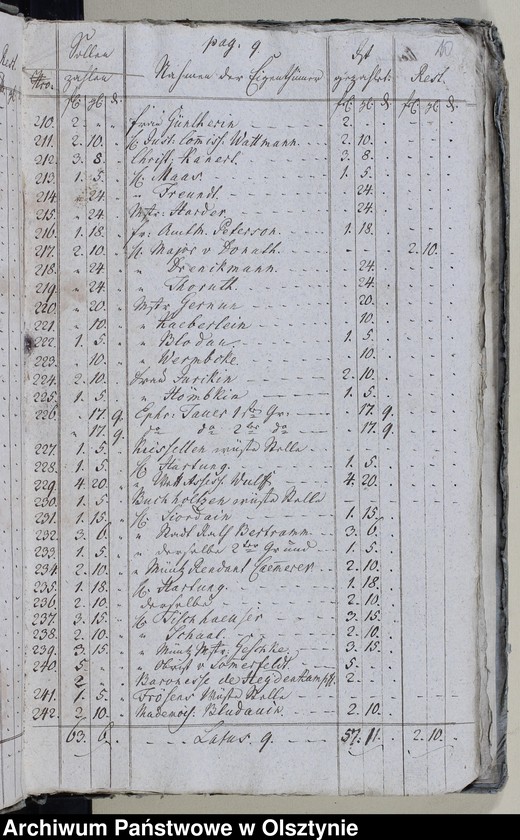 pag. 9
Sollen zahlen Nahmen der Eigenthümer Ist gezahlet Rest
Nro.
210. 2 - - Frau Güntherin 2
211. 2. 10. H. Just. Commiss. Wattmann. 2. 10.
212. 3. 8. Christ. Kanert. 3. 8.
213. 1. 5. H. Maas. 1. 5.
214. " 24. " Freundt. 24.
215. " 24. Mstr: Harder 24.
216. 1. 18. Fr: Peterson. 1. 18.
217. 2. 10. H. Major v Donath. 2. 10.
218. " 24. " Drenikmann. 24.
219. " 24. " Thoruth. 24.
220. " 20. Mstr Gernun 20.
221. " 10. " Haeberlein 10.
222. 1. 5. " Blodau. 1. 5.
223. " 10. " Wermbcke. 10.
224. 2. 10. Frau Jurikin 2. 10.
225. 1. 5. " Hömbkin 1. 5.
226. " 17. 9. Ephr: Sauer 1ste Gr: 17. 9.
" 17. 9. do do 2te do 17. 9.
227. 1. 5. wüste Stelle
228. 1. 5. H. Hartung. 1. 5.
229. 4. 20. " Wulff 4. 20.
230. 1. 5. Buchholtzen wüste Stelle
231. 1. 15. H. Siordain 1. 15.
232. 3. 6. " Stadt Rath Bertramm. 3. 6.
233. 1. 5. " derselbe 2ter Grund 1. 5.
234. 2. 10. " Müntz Rendant Caemerer. 2. 10.
235. 1. 18. H. Hartung. 1. 18.
236. 2. 10. derselbe 2. 10.
237. 3. 15. H. Fischhaeuser 3. 15.
238. 2. 10. " Schaal. 2. 10.
239. 3. 15. " Müntz Mstr: Geschke. 3. 15.
240. 5. " Obrist v Somerfeldt 5.
2. Baronesse de Heydenkampff. 2.
241. 1. 5. Frösens wüste Stelle
242. 2. 10. Mademois. Bludauin. 2. 10.
63. 6. Latus 9. 57. 11. 2. 10.
Archiwum Państwowe w Olsztynie